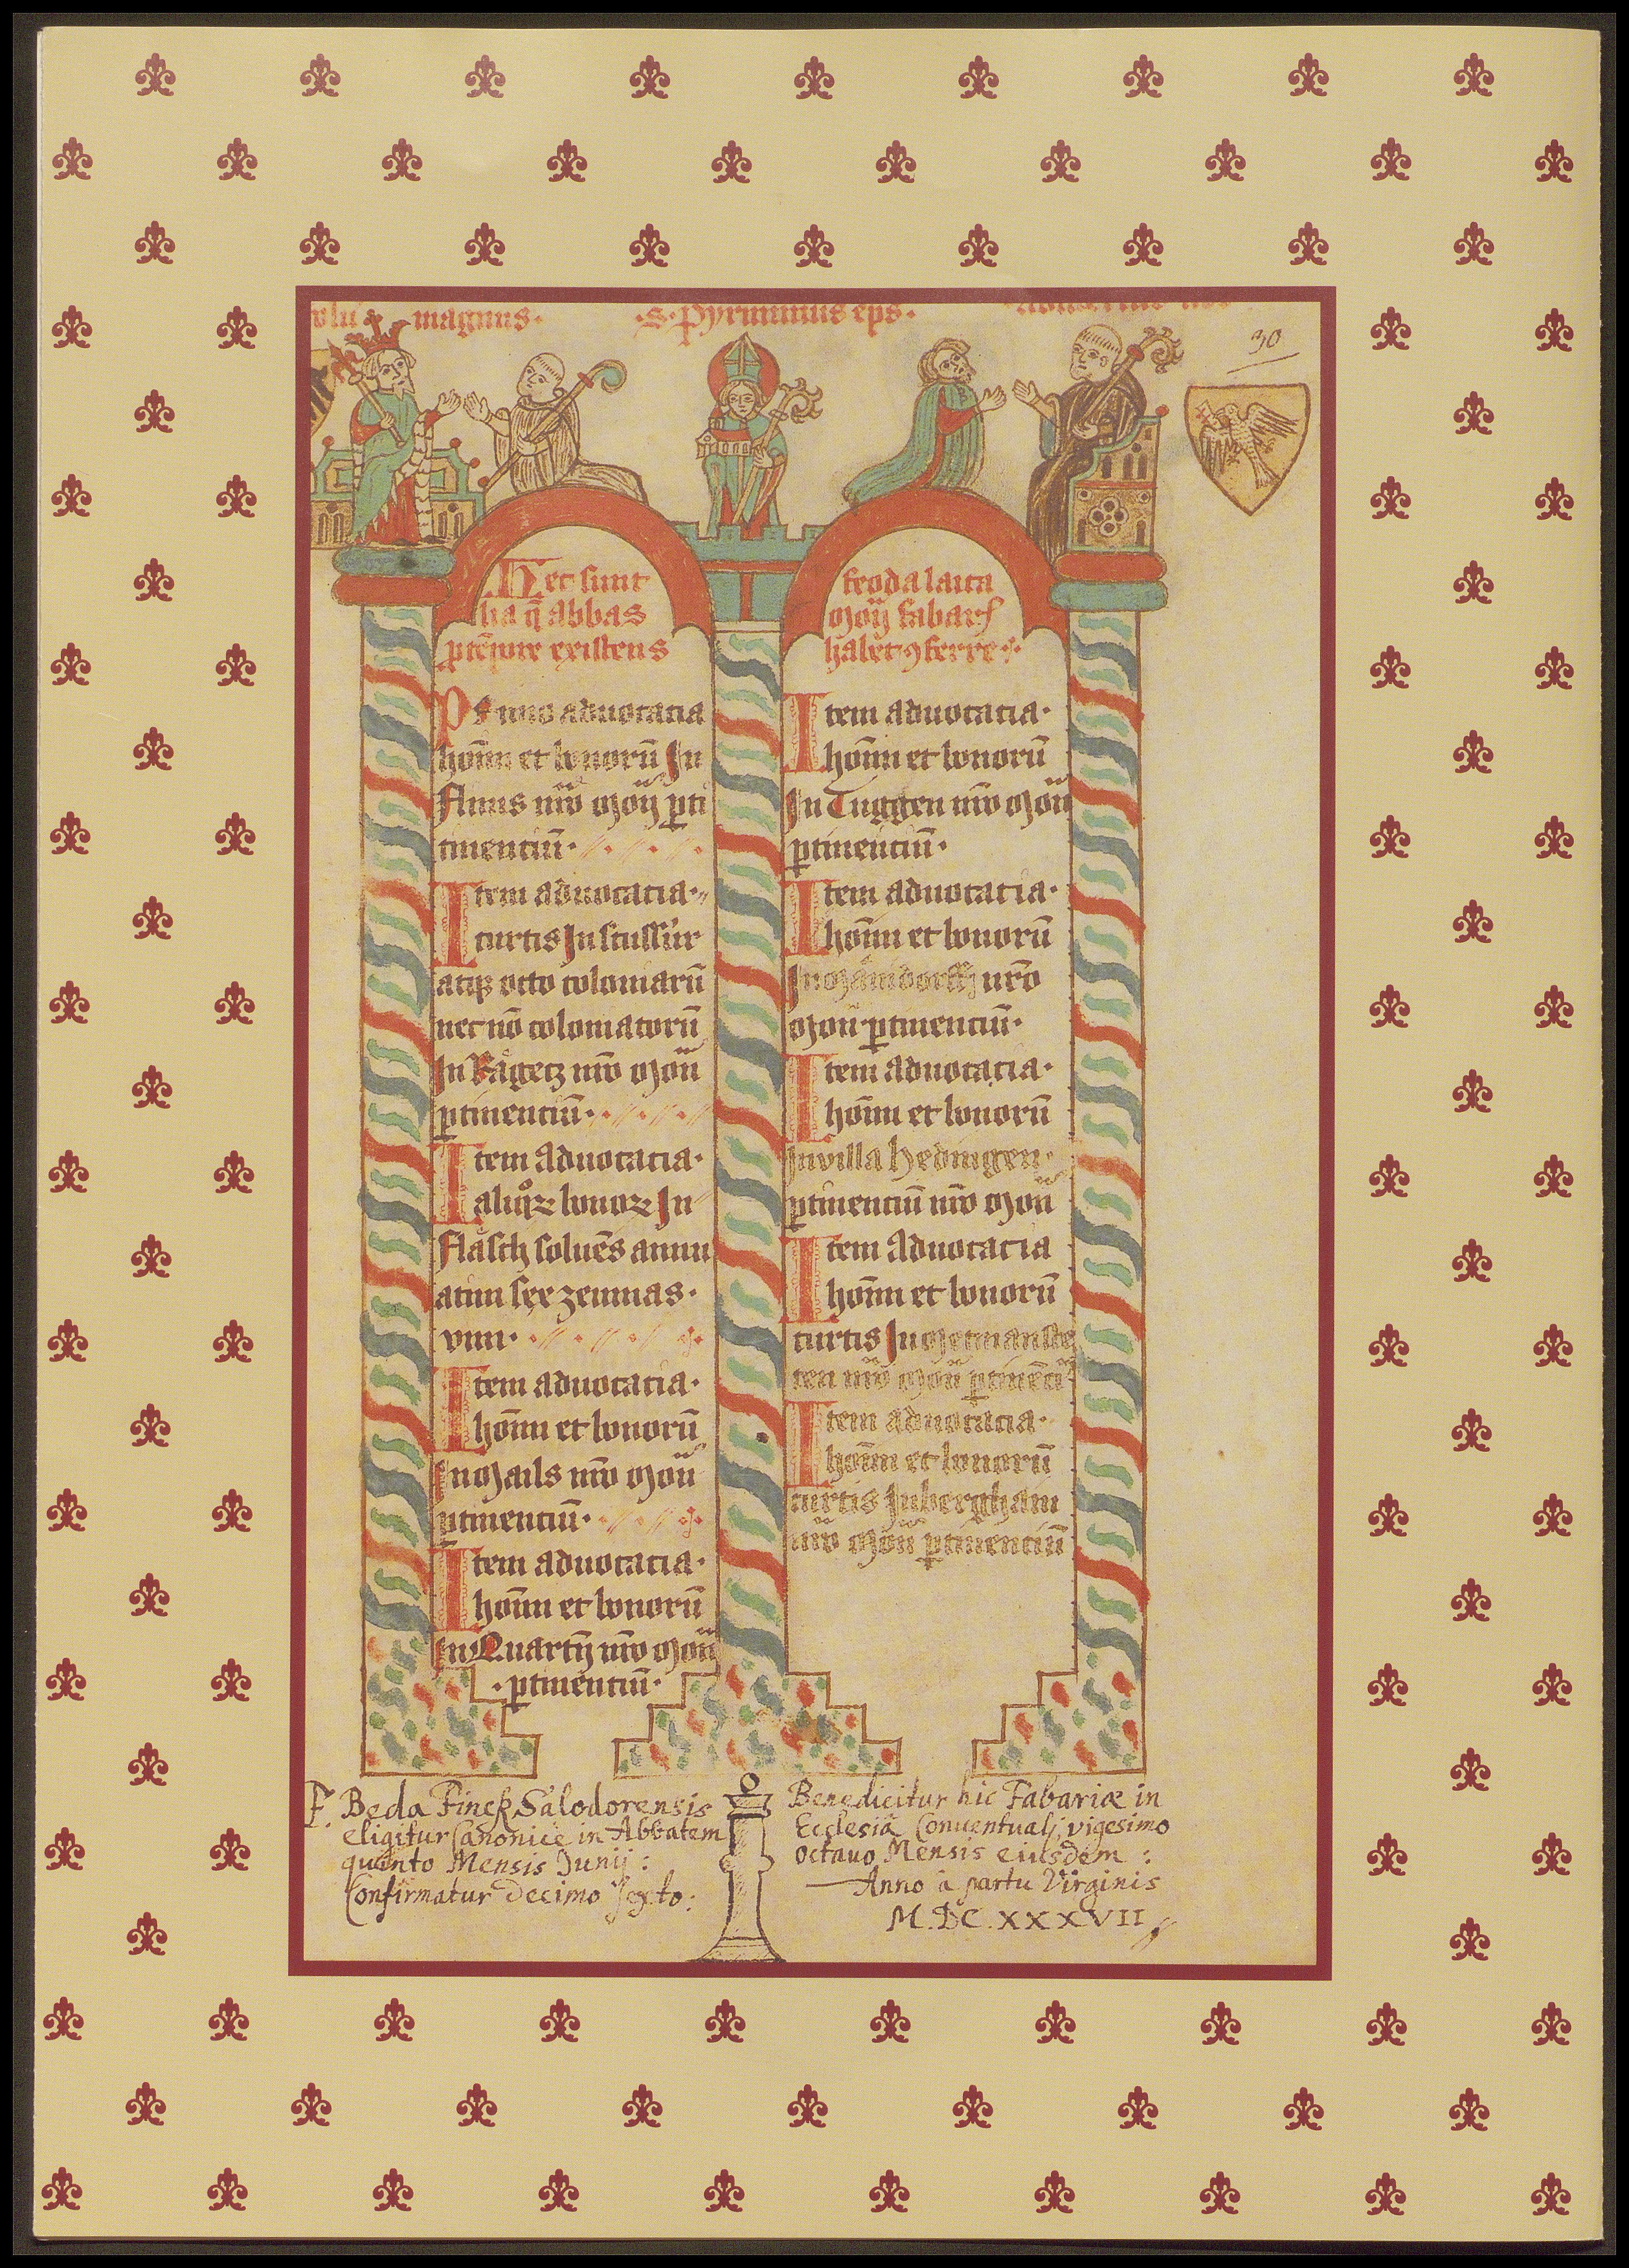 magnus.
.S. Pyrminius eps.
30
Hec sunt
ha q̄ abbas
existens
feoda laica
Mon̄ fabar̄
habet ꝯferre
Pmo aduocatia
hoīm et bonorū In
Flums nr̄o Mon̄ ꝑti
tinenciū.
Item aduocatia.
curtis In
atqꝫ octo coloniarū
nec nō colonatorū
In Rägetz nr̄o Mon̄
ꝑtinenciū.
Item Aduocatia.
bonoꝝ In
Fläsch soluēs annu
atim
viii.
Item aduocatia.
hoīm et bonorū
In Mails nr̄o Mon̄
ꝑtinenciū.
Item aduocatia.
hoīm et bonorū
In Quartī nr̄o Mon̄
. ꝑtinenciū.
Item aduocatia.
hoīm et bonorū
In Tuggen nr̄o Mon̄
ꝑtinenciū.
Item aduocatia.
hoīm et bonorū
In Mänidorff nr̄o
Mon̄ ꝑtinenciū.
Item aduocatia.
hoīm et bonorū
In villa Hedingen.
ꝑtinenciū nr̄o Mon̄
Item Aduocatia
hoīm et bonorū
curtis In Metmanste
ten nr̄o Mon̄ ꝑtinēci
Item aduocatia.
hoīm et bonorū
curtis In bergham
nr̄o Mon̄ ꝑtinenciū
F. Beda Finck Salodorensis
eligitur Canonicè in Abbatem
quinto Mensis Junij :
Confirmatur decimo sexto:
Benedicitur hic Fabariæ in
Ecclesiâ Conuentuali, vigesimo
octauo Mensis eiusdem :
Anno à partu Virginis
M.DC.XXXVII